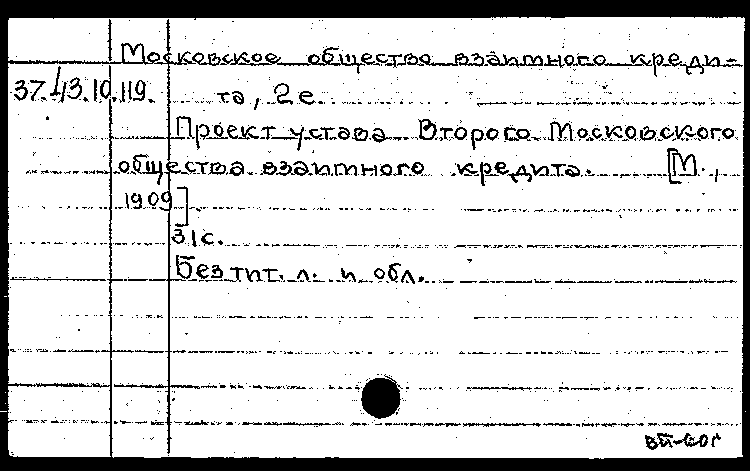 Московское общество взаимного креди-
37.43.10.119. та, 2е.
Проект устава Второго Московского
общества взаимного кредита. [М.,
1909].
31с.
Без тит. л. и обл.